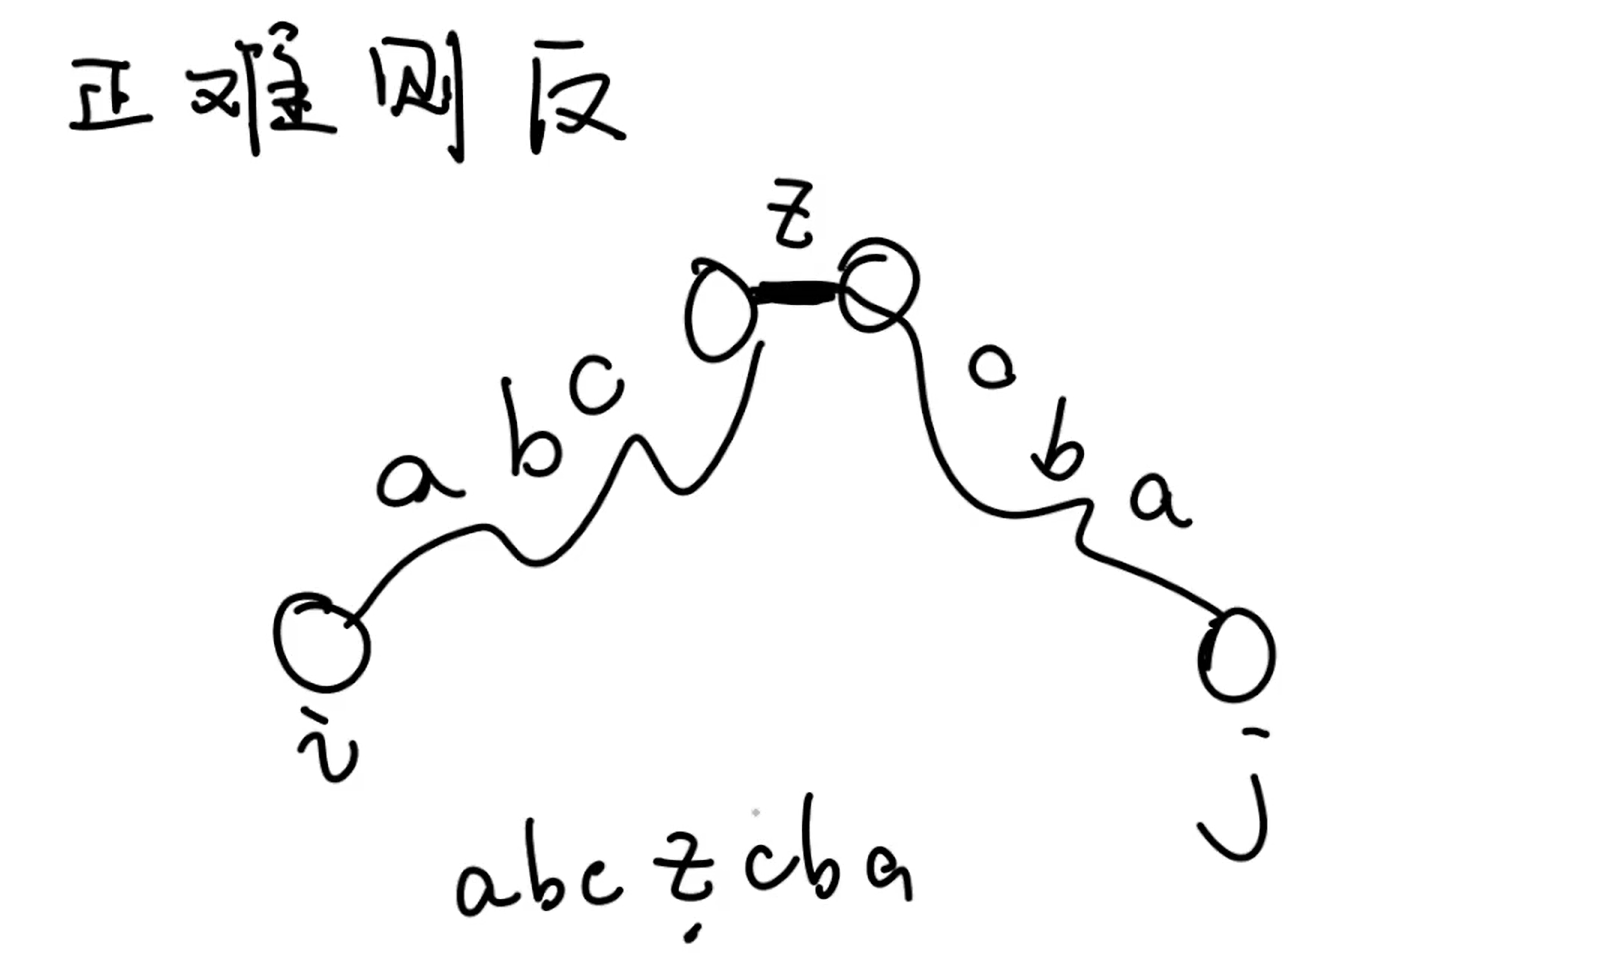 正难则反
z
a b c
o b a
i
j
abc z cba